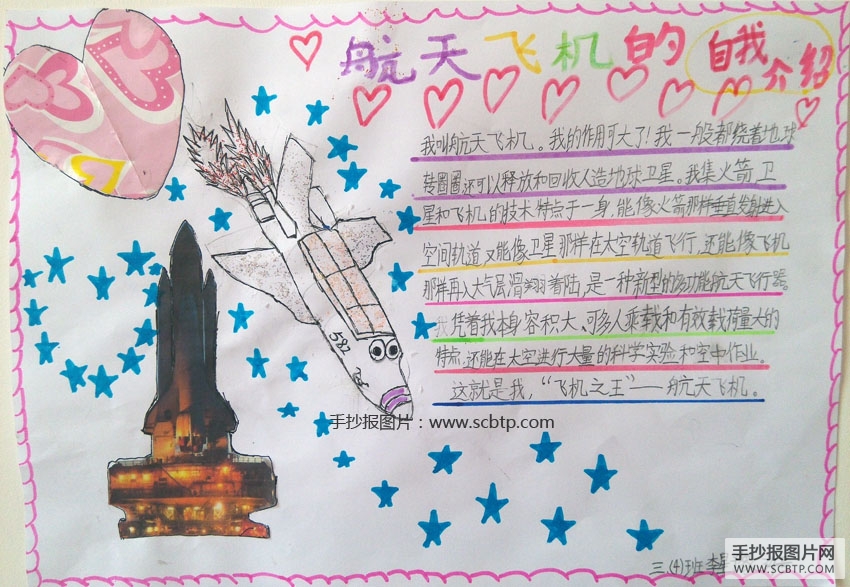 航天飞机的自我介绍
我叫航天飞机。我的作用可大了！我一般都绕着地球
转圈圈还可以释放和回收人造地球卫星。我集火箭、卫
星和飞机的技术特点于一身，能像火箭那样垂直发射进入
空间轨道，又能像卫星那样在太空轨道飞行，还能像飞机
那样再入大气层滑翔着陆，是一种新型的多功能航天飞行器。
我凭着我本身容积大、可多人乘载和有效载荷量大的
特点，还能在太空进行大量的科学实验和空中作业。
这就是我，“飞机之王”——航天飞机。
592
手抄报图片：www.scbtp.com
三.(4)班 李
手抄报图片网
WWW.SCBTP.COM